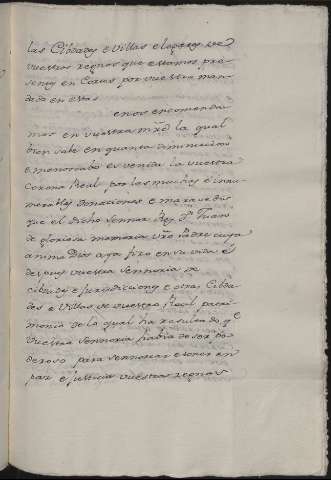 las Cibdades e villas e logares de
vuestros regnos que estamos pre-
sentes en Cortes por vuestra man-
dado en estas
en nos encomenda
mos en vuestra mrd la qual
bien sabe en quanta diminucion
e menoscabo es venida la vuestra
Corona Real, por las muchas e innu-
merables donaciones e mercedes
que el dicho sennor Rey Dn Juan
de gloriosa memoria vro Padre cuya
anima Dios aya fizo en su vida e
despues vuestra sennoria de
cibdades e jurisdiciones e otras Cibda-
des e Villas de vuestro Real patri-
monio de lo qual ha resultado qe
vuestra sennoria habia de ser po-
deroso para sennorear e tener en
paz e justicia vuestros regnos